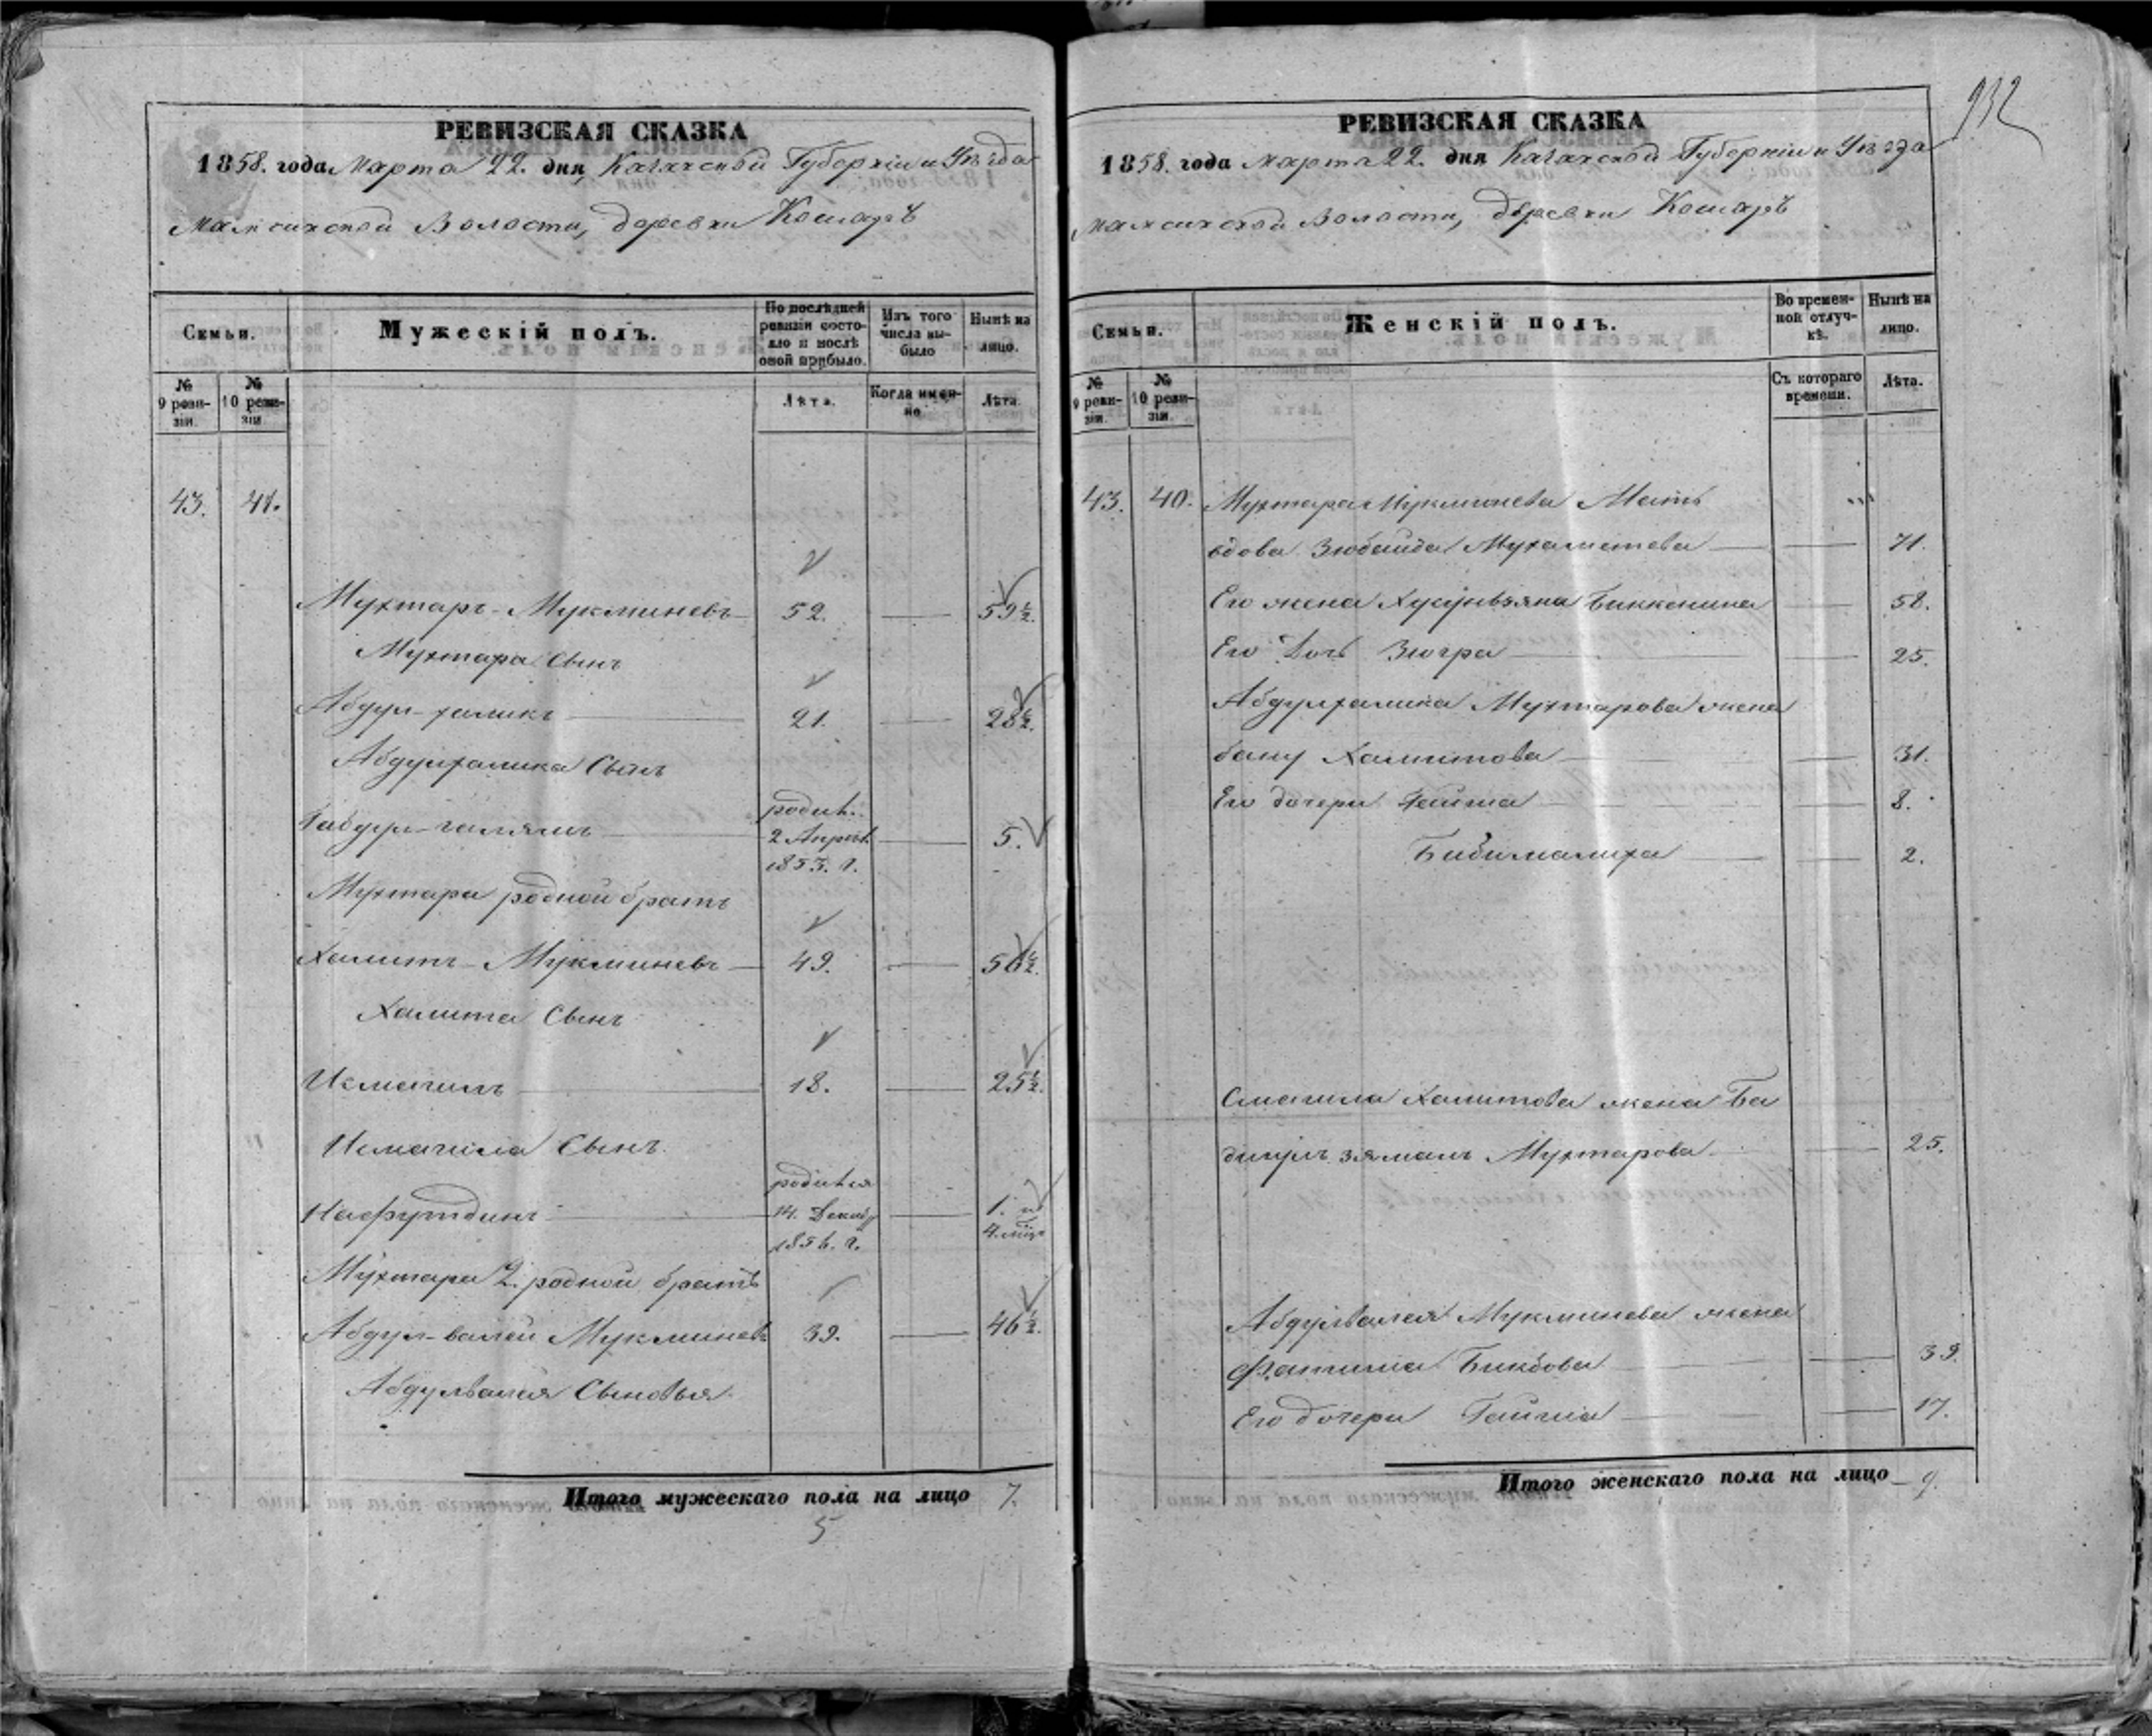 РЕВИЗСКАЯ СКАЗКА
1858. года Марта 22. дня, Казанской Губерніи и Уѣзда
Мамсинской Волости, деревни Кошаръ
Семьи.
Мужескій полъ.
По послѣдней ревизіи состояло и послѣ оной прибыло.
Изъ того числа выбыло
Нынѣ на лицо.
№ 9 ревизіи.
№ 10 ревизіи.
Лѣта.
Когда именно
Лѣта.
43. 41.
Мухтаръ Мукминевъ 52. 59½.
Мухтара Сынъ
Абдул-халикъ 21. 28½.
Абдулхалика Сынъ
Габдул-галямъ родил. 2 Апрѣл. 1853. г. 5.
Мухтара родной братъ
Хамитъ Мукминевъ 49. 56½.
Хамита Сынъ
Исмагилъ 18. 25½.
Исмагила Сынъ.
Насрутдинъ родился 14. Декабр 1856. г. 1. и 4. мѣс.
Мухтара 2. родной братъ
Абдул-валей Мукминевъ 39. 46½.
Абдулвалея Сыновья.
Итого мужескаго пола на лицо 7.
5
932
РЕВИЗСКАЯ СКАЗКА
1858. года Марта 22. дня Казанской Губерніи и Уѣзда
Мамсинской Волости, деревни Кошаръ
Семьи.
Женскій полъ.
Во временной отлучкѣ.
Нынѣ на лицо.
№ 9 ревизіи.
№ 10 ревизіи.
Съ котораго времени.
Лѣта.
43. 40. Мухтара Мукминева Мать
вдова Зюбайда Мухаметева 71.
Его жена Биккенина 58.
Его Дочь Зюгра 25.
Абдулхалика Мухтарова жена
бану Хамитова 31.
Его дочери Гайша 8.
Бибималиха 2.
Смагила Хамитова жена Ба
дигулъ зямалъ Мухтарова 25.
Абдулвалея Мукминева жена
Фатима Бикбова 39.
Его дочери Гайша 17.
Итого женскаго пола на лицо 9.